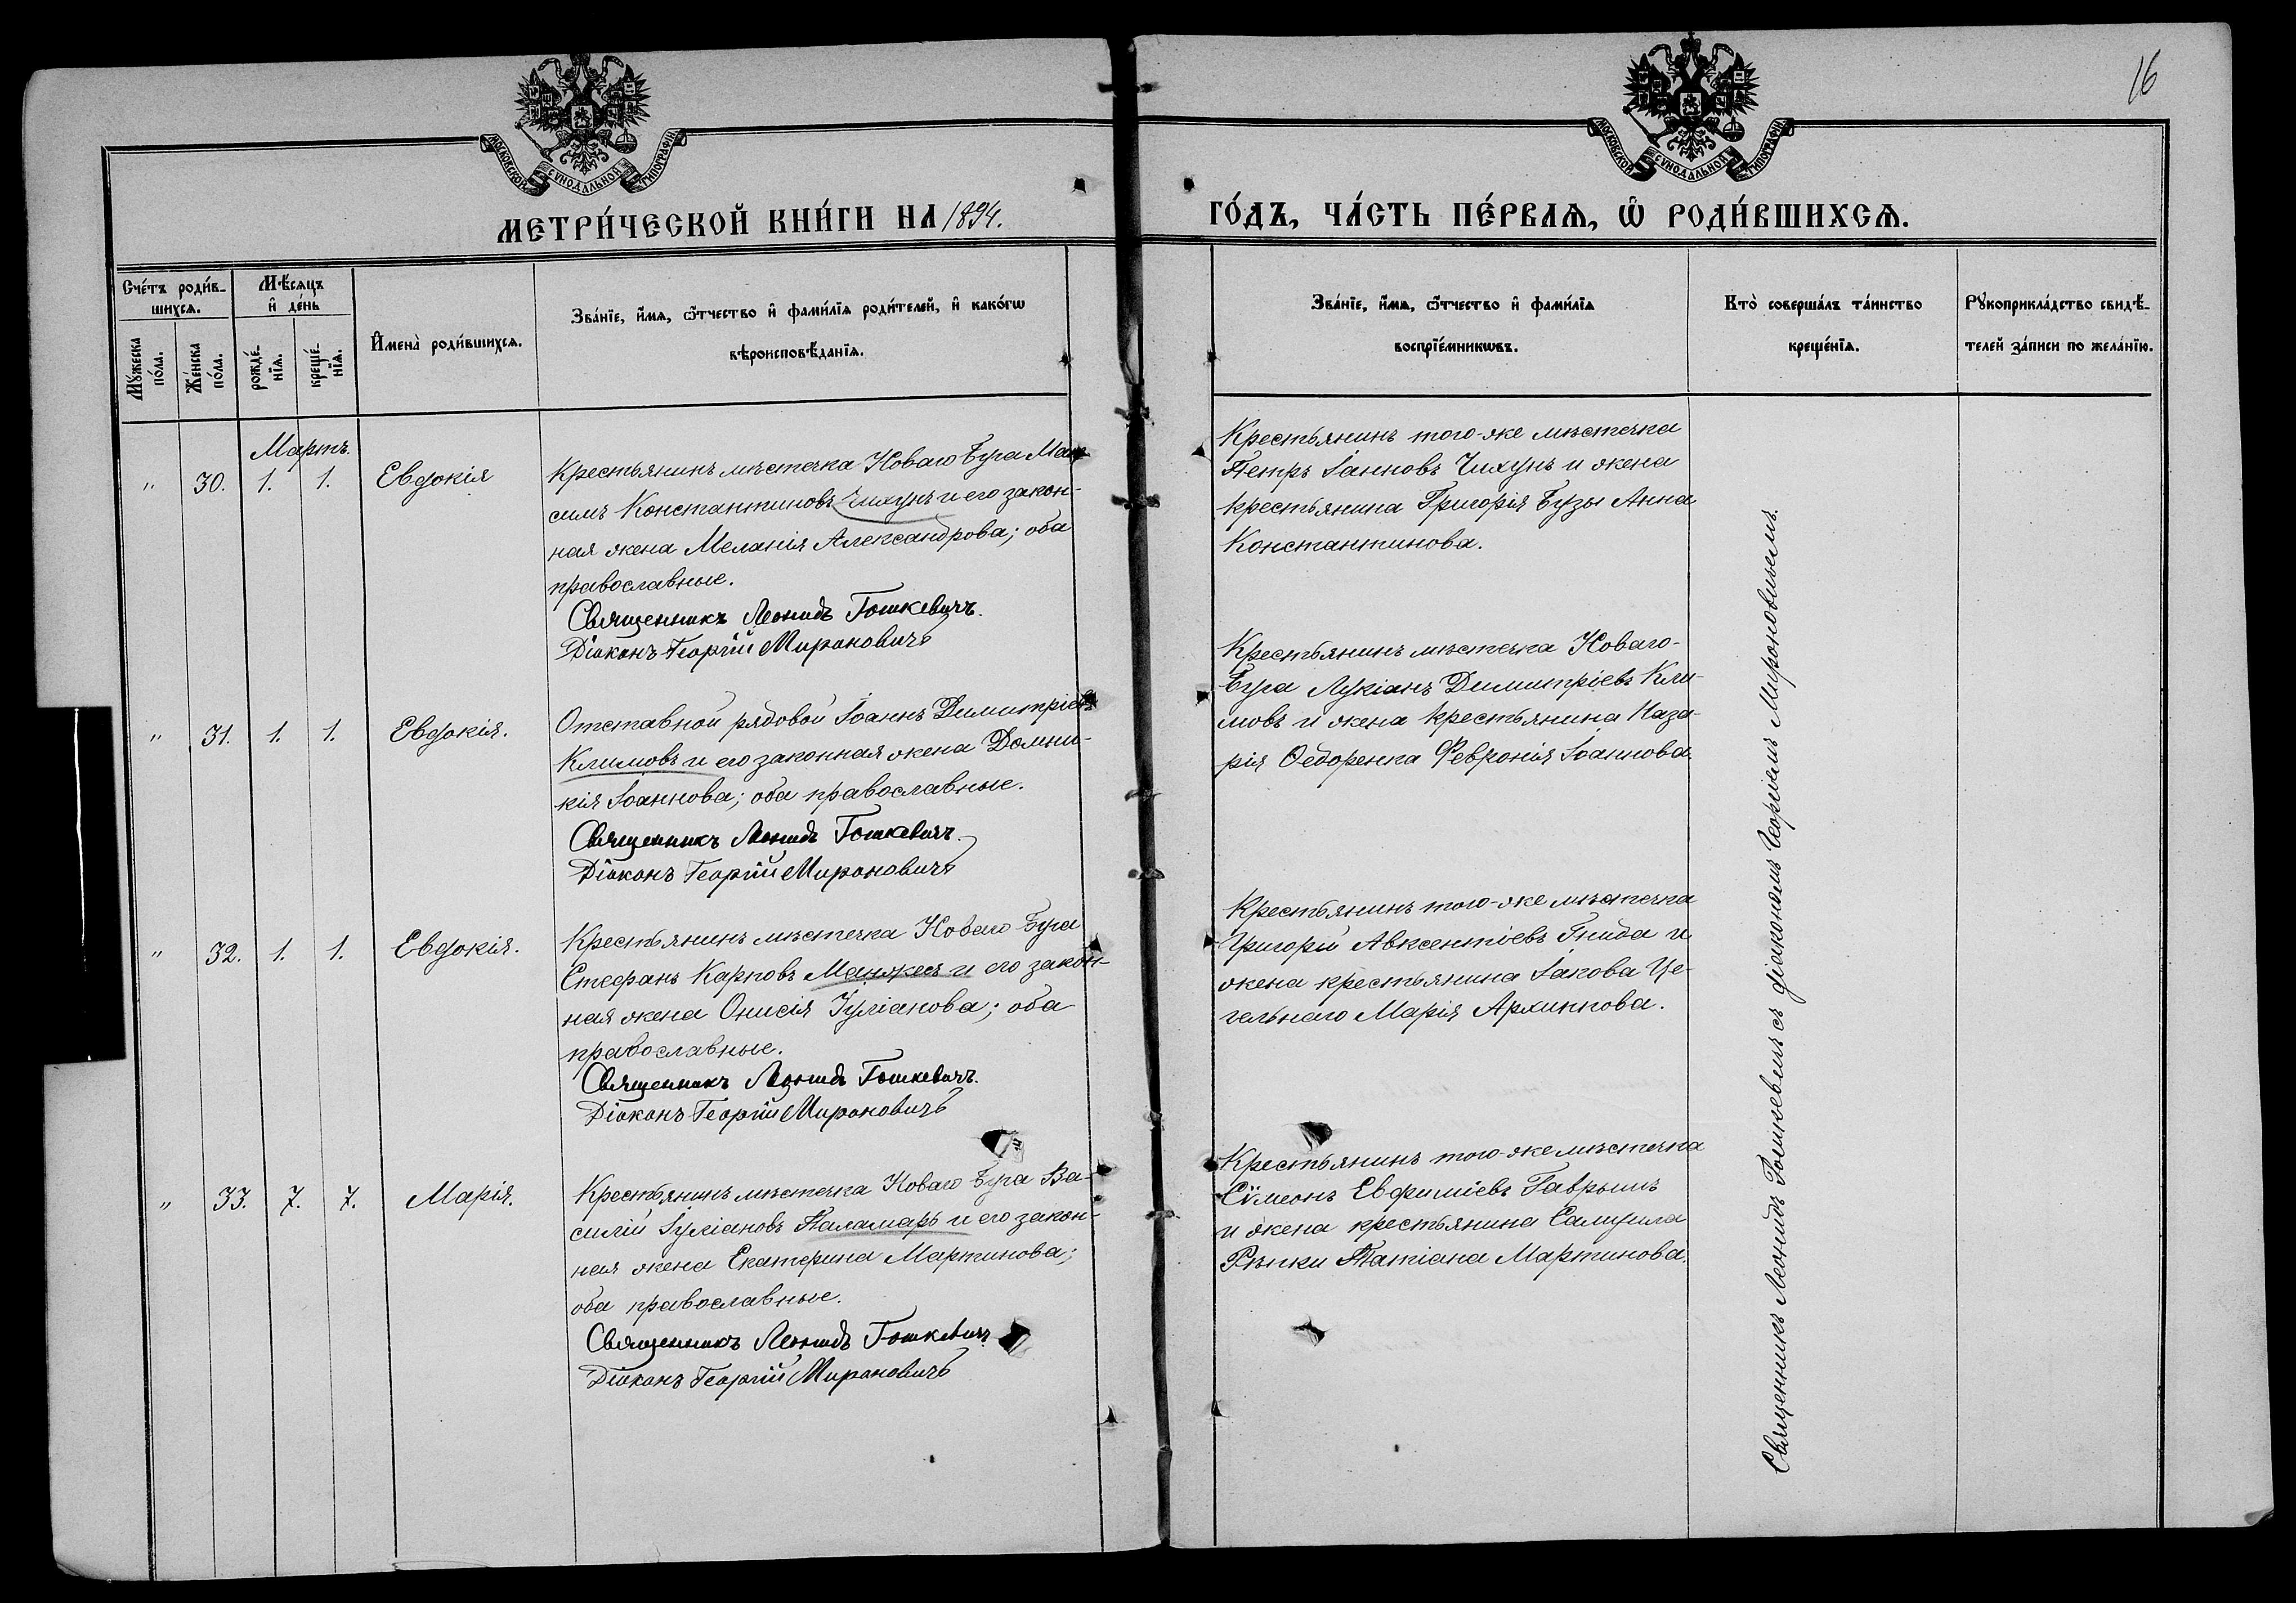 16
МОСКОВСКОЙ СѴНОДАЛЬНОЙ ТИПОГРАФІИ
МОСКОВСКОЙ СѴНОДАЛЬНОЙ ТИПОГРАФІИ
МЕТРИ́ЧЕСКОЙ КНИ́ГИ НА 1894.
ГО́ДЪ, ЧА́СТЬ ПЕ́РВАѦ, Ѽ РОДИ́ВШИХСѦ.
Сче́тъ роди́в-
шихсѧ.
Мѣ́сѧцъ
и҆ де́нь
Мꙋ́жеска
по́ла.
Же́нска
по́ла.
рожде́-
нїѧ.
креще́-
нїѧ.
И҆мена̀ роди́вшихсѧ.
Зва́нїе, и҆́мѧ, ѻ҆́тчество и҆ фами́лїѧ роди́телей, и҆ како́гѡ
вѣроисповѣ́данїѧ.
Зва́нїе, и҆́мѧ, ѻ҆́тчество и҆ фами́лїѧ
воспрїе́мникѡвъ.
Кто̀ соверша́лъ та́инство
креще́нїѧ.
Рꙋкоприкла́дство свидѣ́-
телей за́писи по жела́нїю.
Мартъ.
" 30. 1. 1. Евдокія
Крестьянинъ мѣстечка Новаго Буга Мак-
симъ Константиновъ Чихунъ и его закон-
ная жена Меланія Александрова; оба
православные.
Священникъ Леонидъ Гошкевичъ.
Діаконъ Георгій Мироновичъ
Крестьянинъ того-же мѣстечка
Петръ Іанновъ Чихунъ и жена
крестьянина Григорія Бузы Анна
Константинова.
" 31. 1. 1. Евдокія.
Отставной рядовой Іоаннъ Димитріевъ
Климовъ и его законная жена Домни-
кія Іоаннова; оба православные.
Священникъ Леонидъ Гошкевичъ.
Діаконъ Георгій Мироновичъ
Крестьянинъ мѣстечка Новаго-
Буга Лукіанъ Димитріевъ Кли-
мовъ и жена крестьянина Наза-
рія Ѳедоренка Феѵронія Іоаннова.
" 32. 1. 1. Евдокія.
Крестьянинъ мѣстечка Новаго Буга
Стефанъ Карповъ Манжея и его закон-
ная жена Онисія Іуліанова; оба
православные.
Священникъ Леонидъ Гошкевичъ.
Діаконъ Георгій Мироновичъ
Крестьянинъ того-же мѣстечка
Григорій Авксентіевъ Гнида и
жена крестьянина Іакова Це-
гельнаго Марія Архиппова.
" 33. 7. 7. Марія.
Крестьянинъ мѣстечка Новаго Буга Ва-
силій Іуліановъ Паламарь и его закон-
ная жена Екатерина Мартинова;
оба православные.
Священникъ Леонидъ Гошкевичъ
Діаконъ Георгій Мироновичъ
Крестьянинъ того-же мѣстечка
Сѵмеонъ Евфиміевъ Гаврышъ
и жена крестьянина Самуила
Рѣпки Татіана Мартинова.
Священникъ Леонидъ Гошкевичъ съ діакономъ Георгіемъ Мироновичемъ.